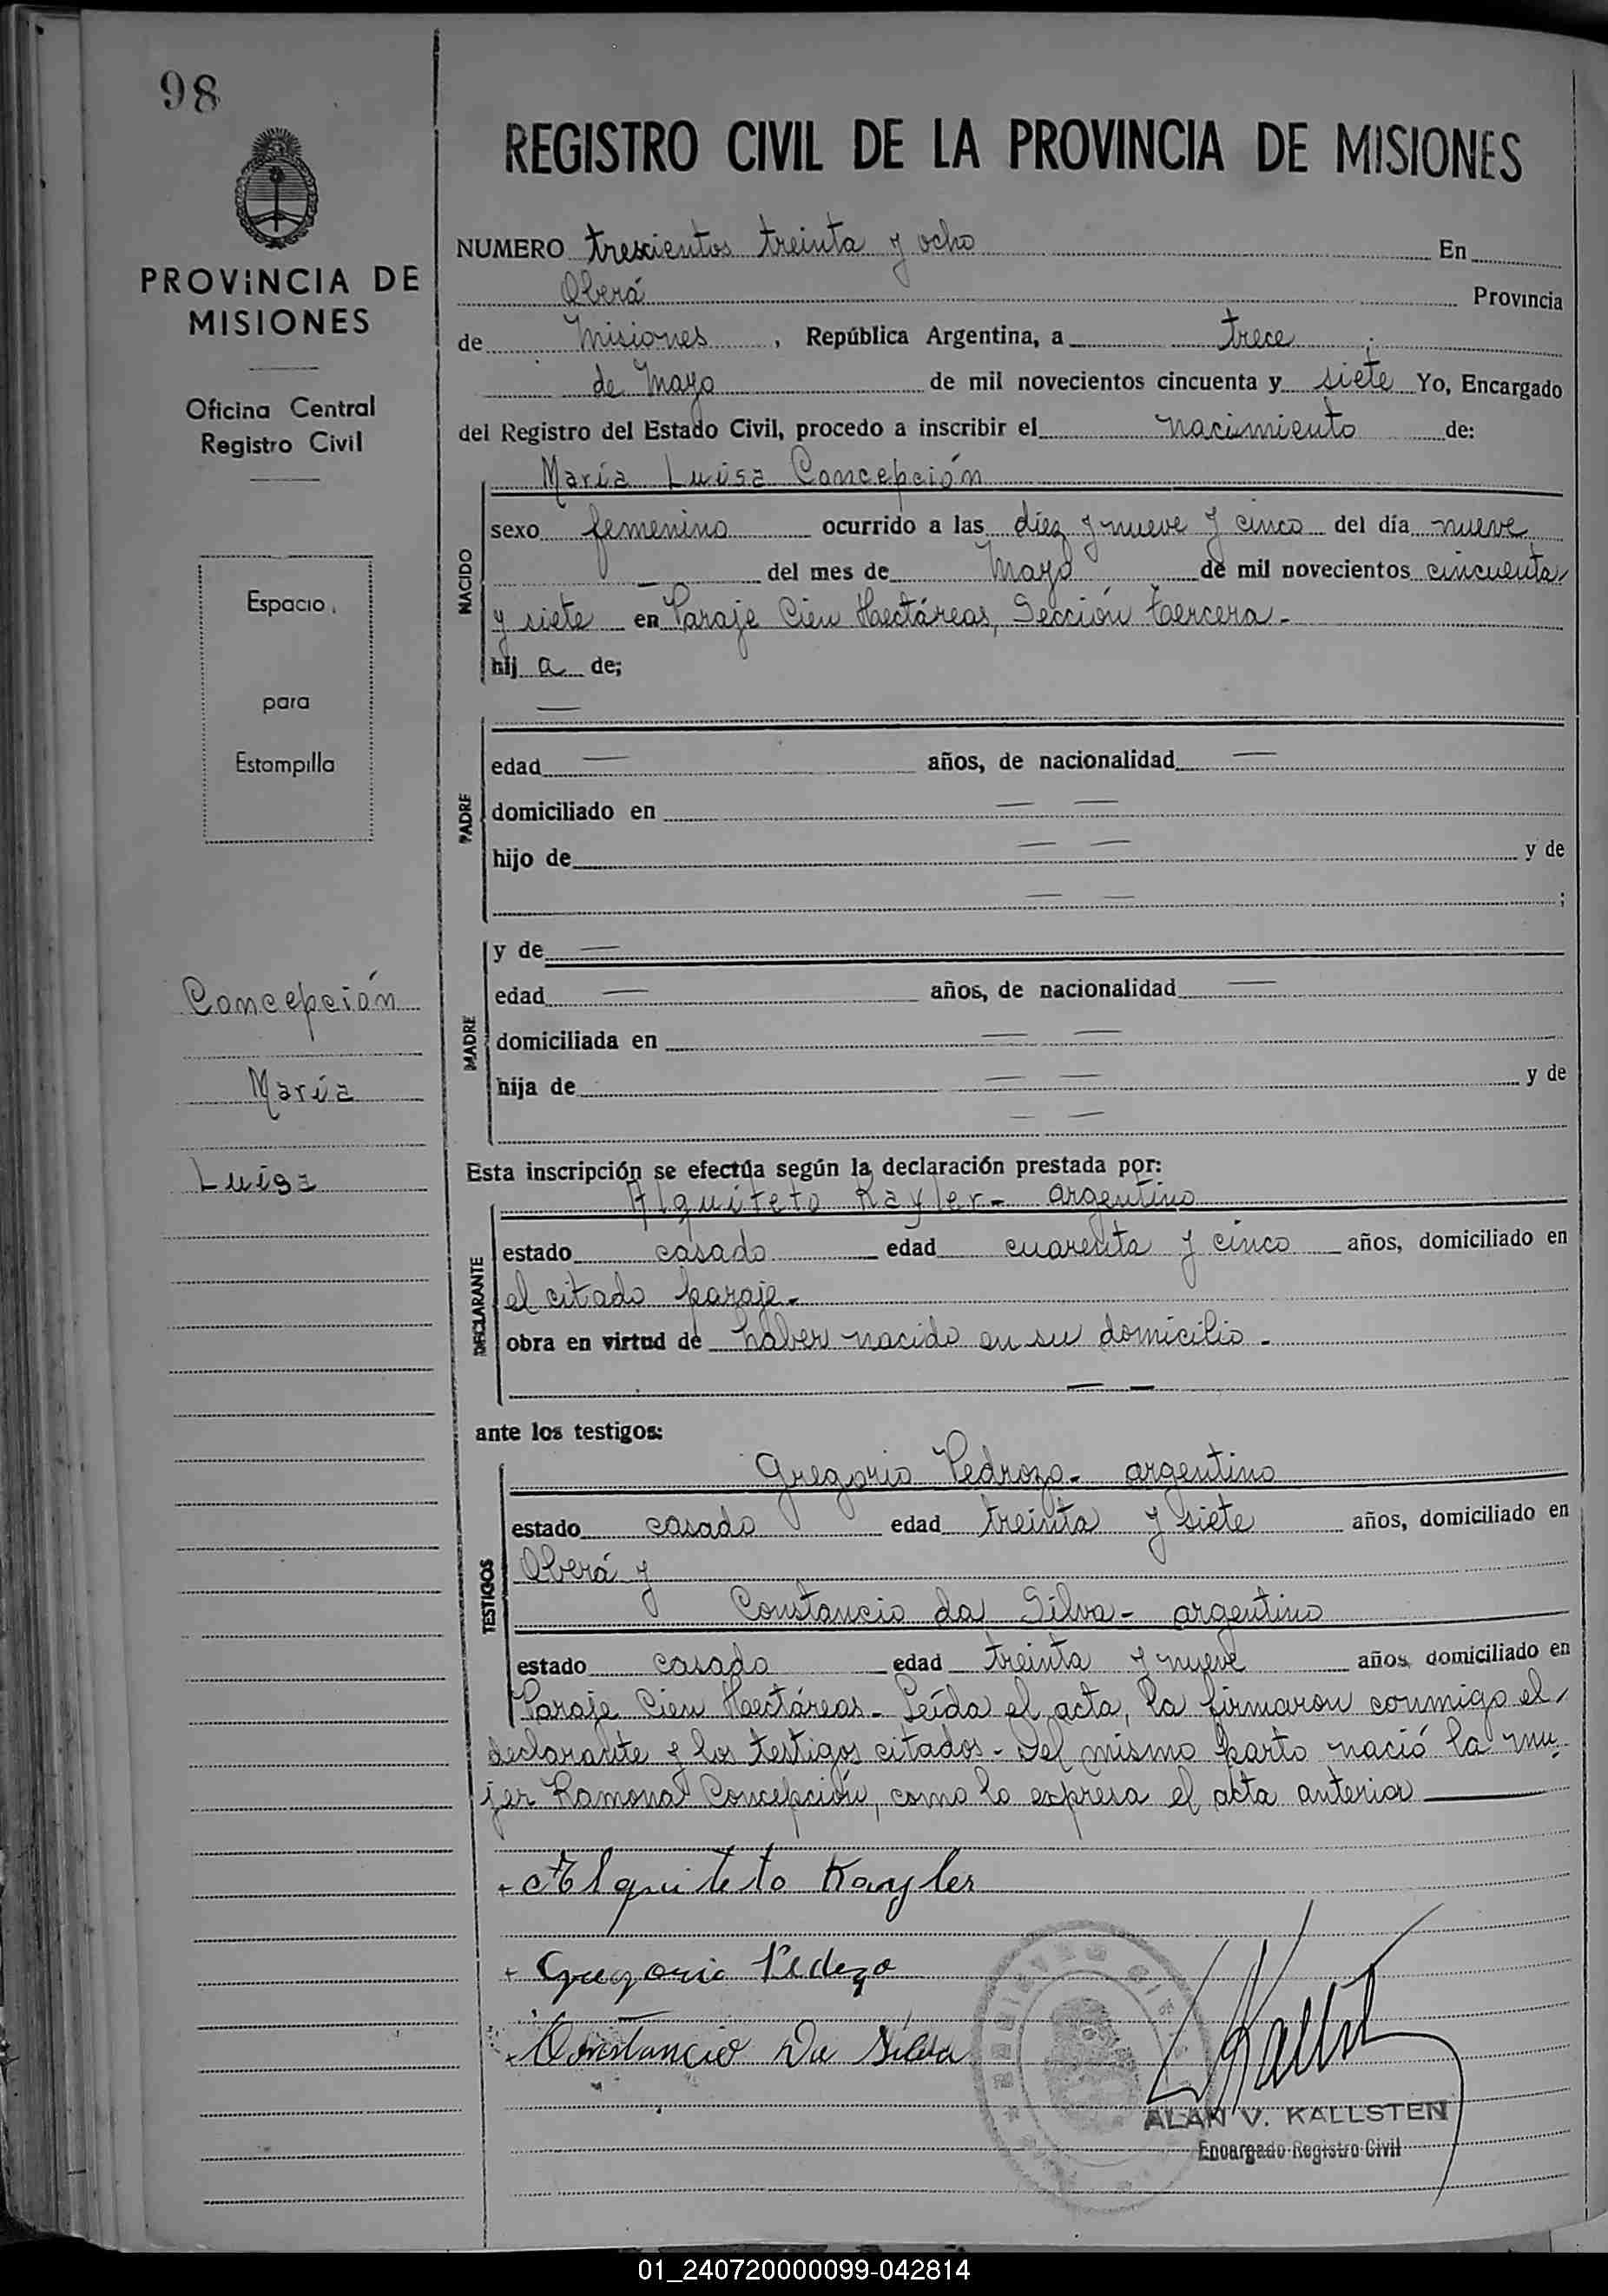 98
PROVINCIA DE
MISIONES
Oficina Central
Registro Civil
Espacio
para
Estampilla
Concepción
María
Luisa
REGISTRO CIVIL DE LA PROVINCIA DE MISIONES
NUMERO trescientos treinta y ocho En
Oberá Provincia
de Misiones, República Argentina, a trece
de Mayo de mil novecientos cincuenta y siete Yo, Encargado
del Registro del Estado Civil, procedo a inscribir el nacimiento de:
María Luisa Concepción
NACIDO
sexo femenino ocurrido a las diez y nueve y cinco del día nueve
— del mes de Mayo de mil novecientos cincuenta
y siete en Paraje Cien Hectáreas, Sección tercera.-
hij a de;
—
PADRE
edad — años, de nacionalidad —
domiciliado en — —
hijo de — — y de
— — ;
MADRE
y de —
edad — años, de nacionalidad —
domiciliada en — —
hija de — — y de
— —
Esta inscripción se efectúa según la declaración prestada por:
DECLARANTE
Alquiteto Kayler.- argentino
estado casado edad cuarenta y cinco años, domiciliado en
el citado paraje.-
obra en virtud de haber nacido en su domicilio.-
— —
ante los testigos:
TESTIGOS
Gregorio Pedrozo.- argentino
estado casado edad treinta y siete años, domiciliado en
Oberá y
Constancio da Silva.- argentino
estado casado edad treinta y nueve años domiciliado en
Paraje Cien Hectáreas.- Leída el acta, la firmaron conmigo el
declarante y los testigos citados.- Del mismo parto nació la mu-
jer Ramona Concepción, como lo expresa el acta anterior
+ Alquiteto Kayler
+ Gregorio Pedrzo
+ Constancio Da Silva
ALAN V. KALLSTEN
Encargado Registro Civil
01_240720000099-042814